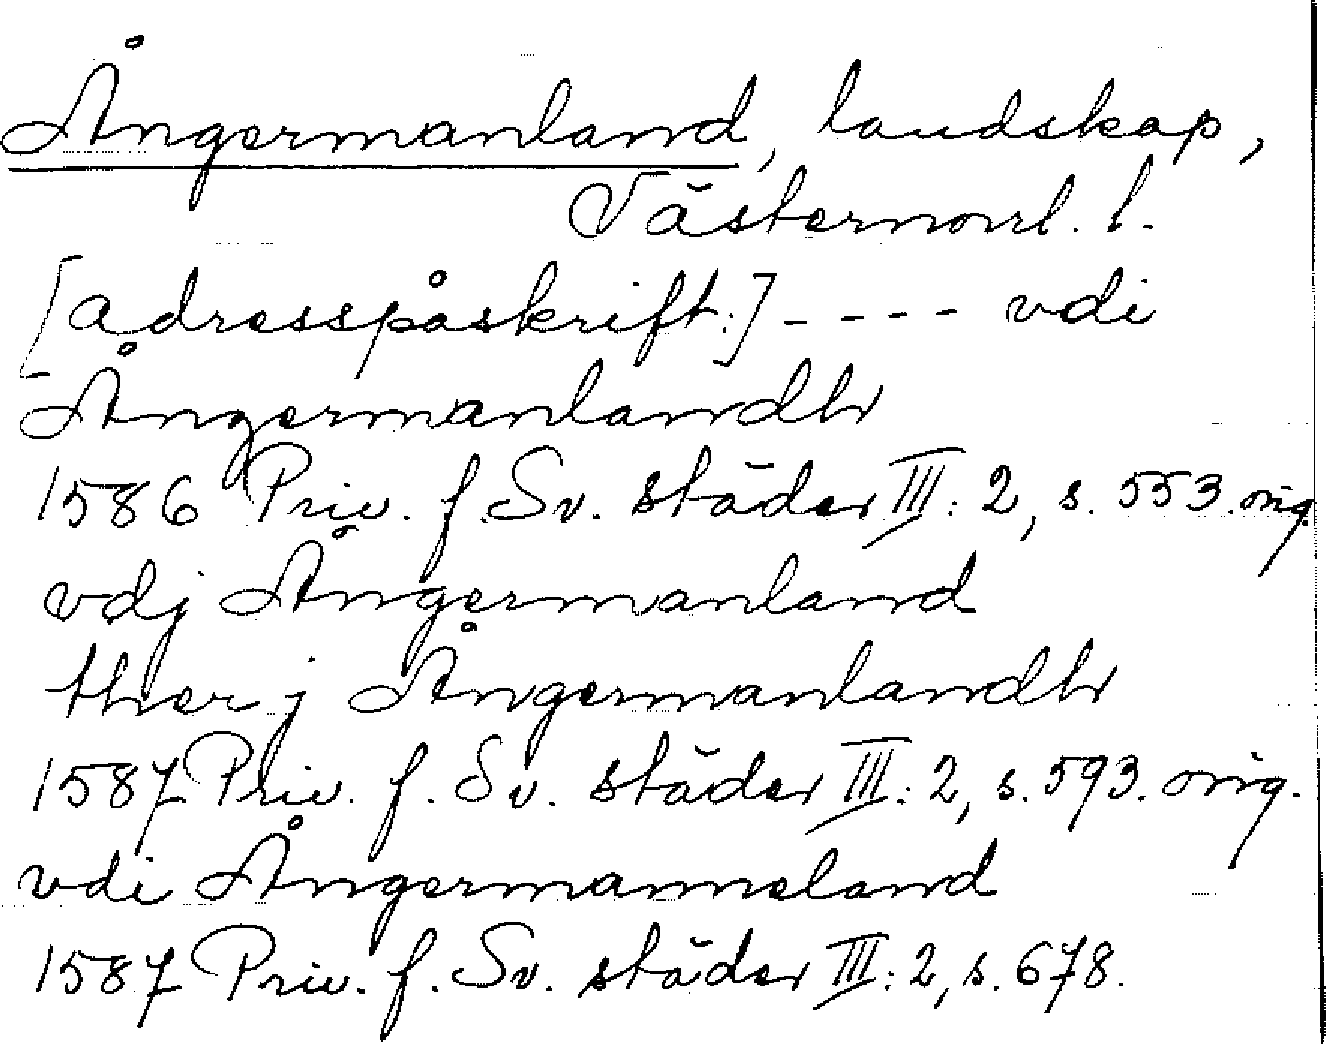 Ångermanland, landskap,
Västernorrl. l.
[adresspåskrift:] - - - - vdi
Ångermanlandh
1586 Priv. f. Sv. städer III: 2, s. 553. orig.
vdj Ångermanland
ther j Ångermanlandh
1587 Priv. f. Sv. städer III: 2, s. 593. orig.
vdi Ångermanneland
1587 Priv. f. Sv. städer III: 2, s. 678.